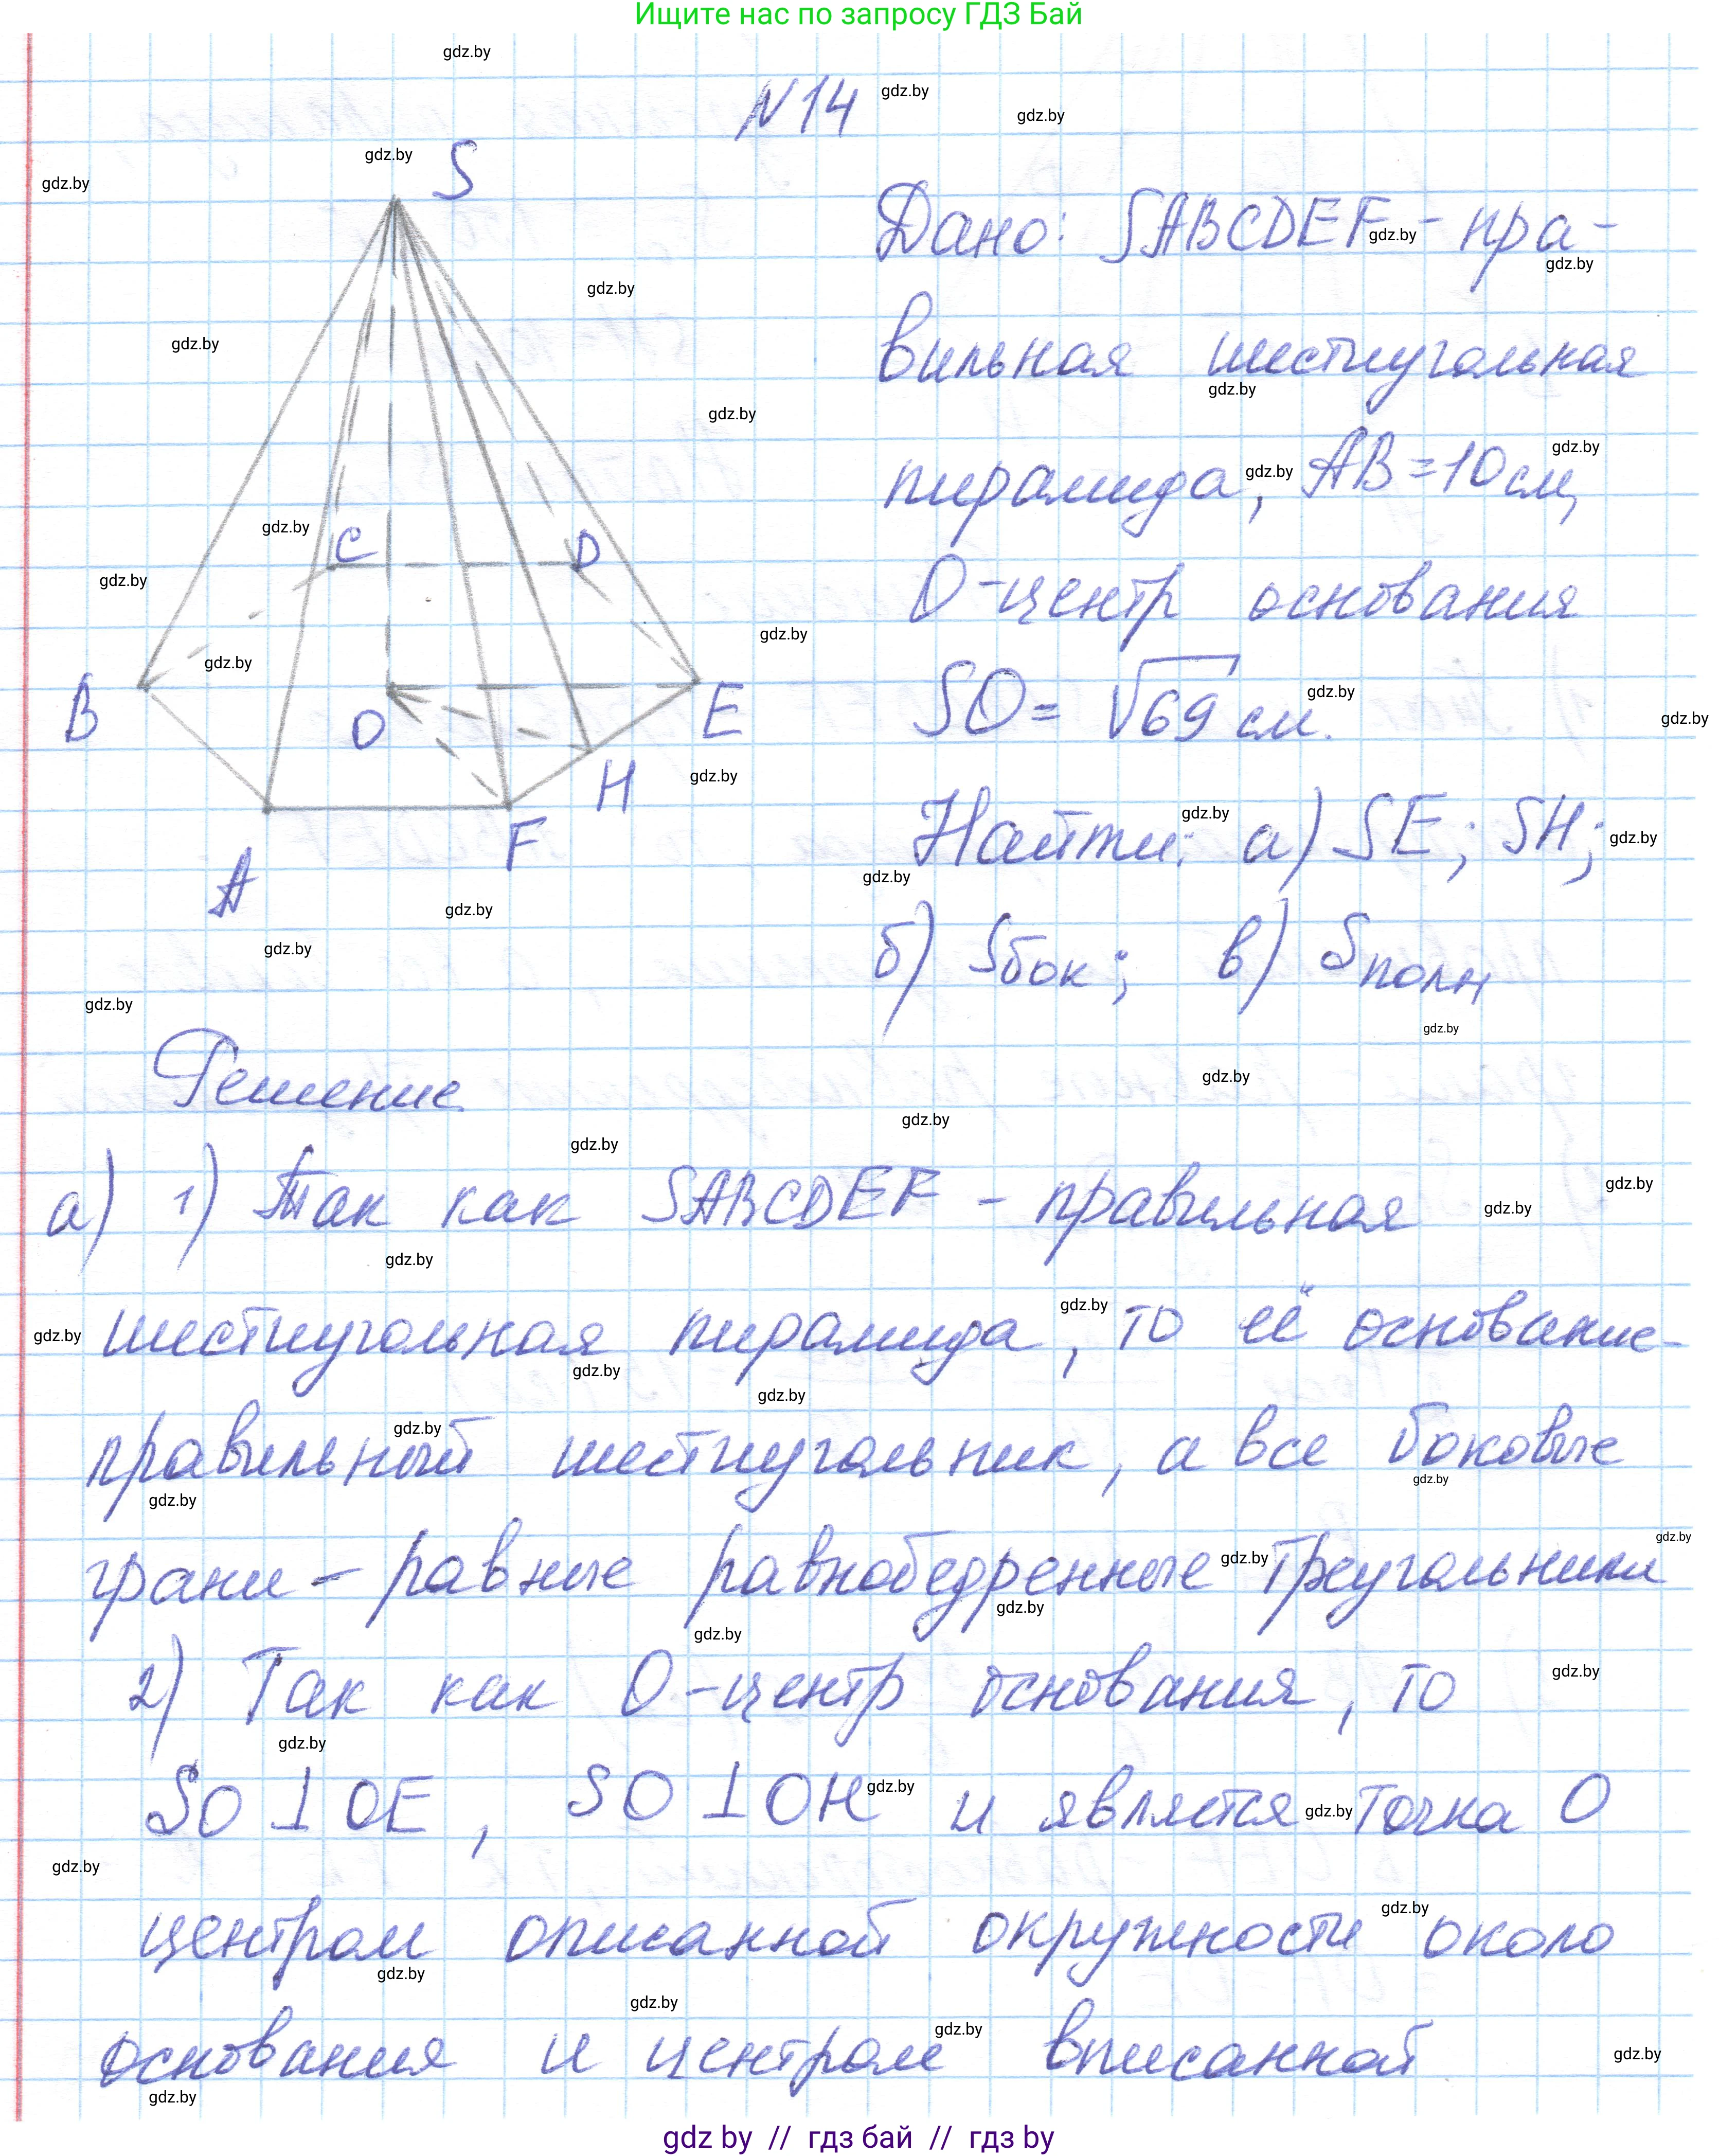 Ищите нас по запросу ГДЗ Бай
N14
S
Дано: SABCDEF - пра-
вильная шестиугольная
пирамида, AB=10см,
O-центр основания
SO= √69 см.
Найти: а) SE; SH;
б) Sбок; в) Sполн
C
D
B
O
E
H
F
A
Решение
а) 1) Так как SABCDEF - правильная
шестиугольная пирамида, то её основание-
правильный шестиугольник, а все боковые
грани - равные равнобедренные треугольники
2) Так как O-центр основания, то
SO ⊥ OE, SO ⊥ OH и является точка O
центром описанной окружности около
основания и центром вписанной
gdz by // гдз бай // гдз by